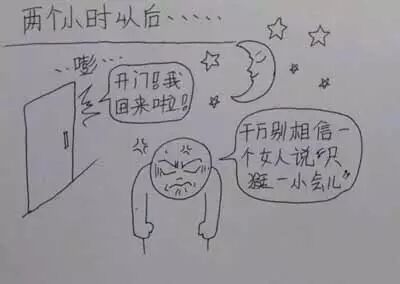 两个小时以后·····
··嘭··
开门!!我
回来啦!!
千万别相信一
个女人说“只
逛一小会儿”